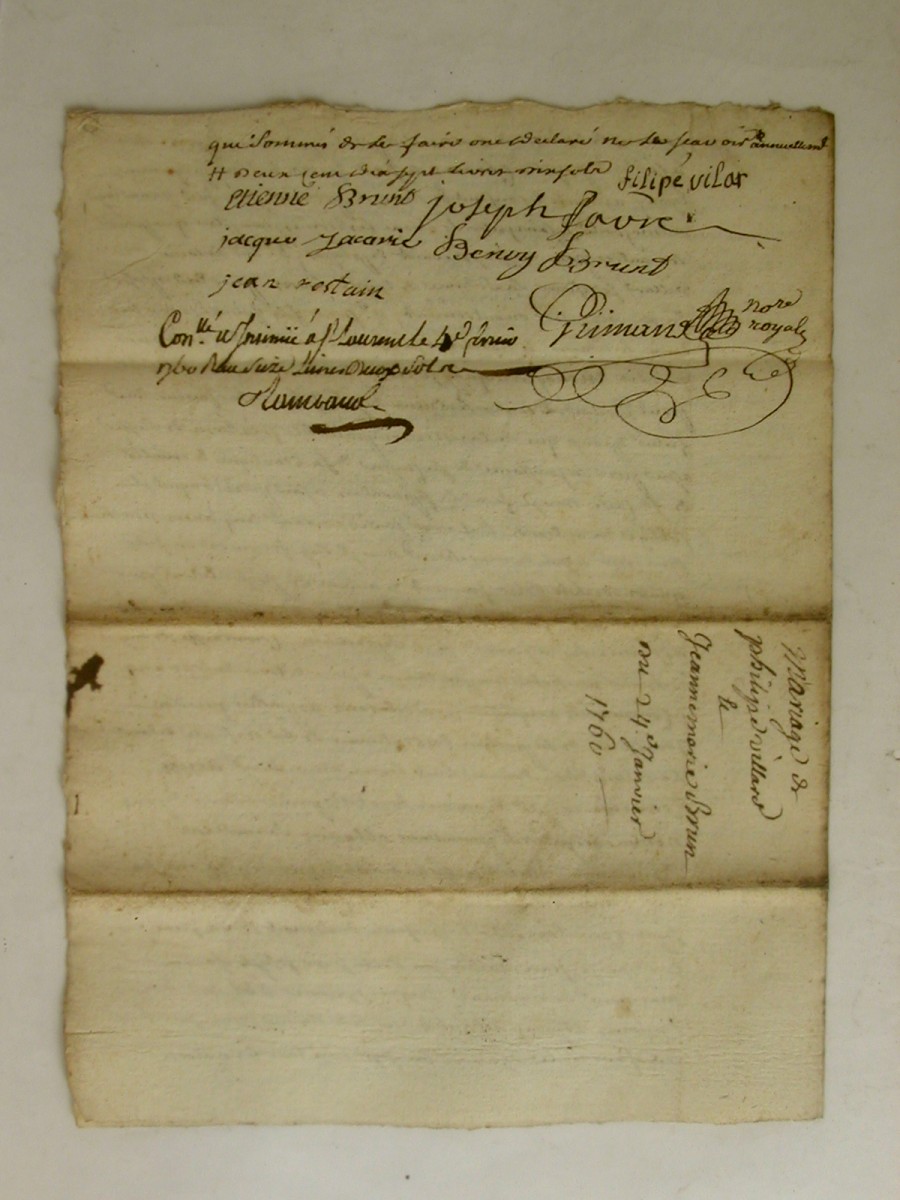 qui Sommés de le faire ont declaré ne le sçavoir annuellement
# deux cens dix sept livres
filipé vilar
Etienne Brunt joseph favre
jacque zacarie Benoy Brunt
jean rostain
Guimand nore
royal
Con.lle à St Laurent le 4e
1760 Reçu seize livres deux sols
Rambaud
Mariage de
philipe villard
&
Jeanne marie Brun
du 24e Janvier
1760